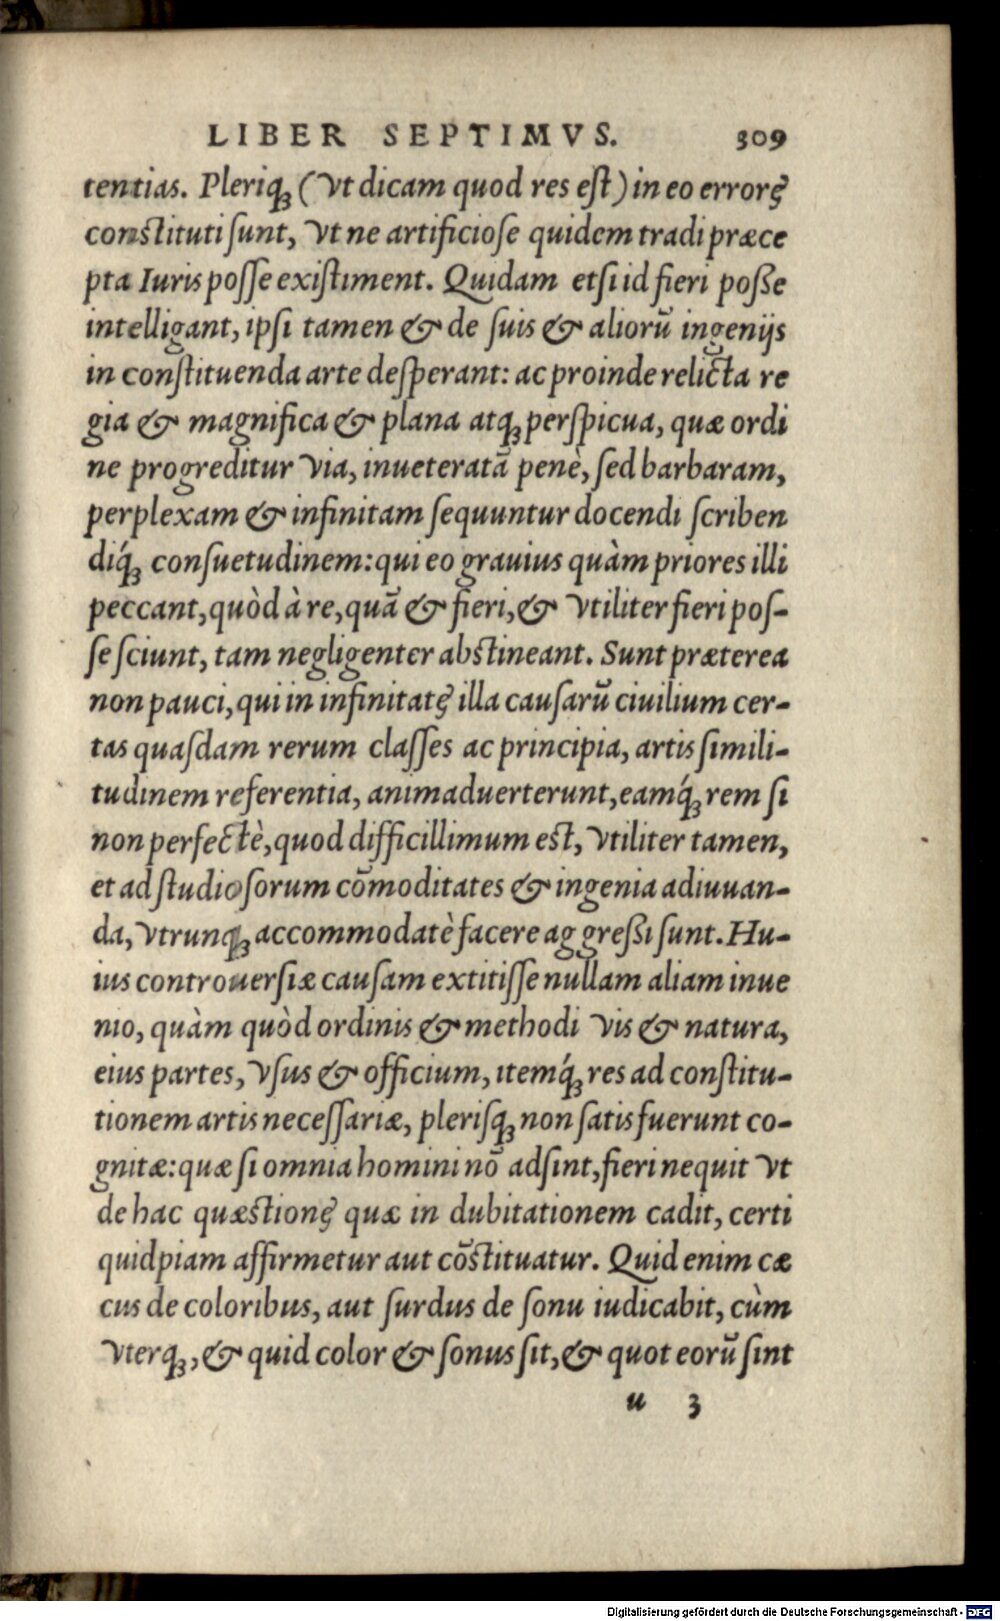 LIBER SEPTIMVS. 309
tentias. Pleriqꝫ (vt dicam quod res est) in eo errorę
constituti sunt, vt ne artificiose quidem tradi præce
pta Iuris posse existiment. Quidam etsi id fieri posse
intelligant, ipsi tamen & de suis & aliorū ingenijs
in constituenda arte desperant: ac proinde relicta re
gia & magnifica & plana atqꝫ perspicua, quæ ordi
ne progreditur via, inueteratā penè, sed barbaram,
perplexam & infinitam sequuntur docendi scriben
diq́ꝫ consuetudinem: qui eo grauius quàm priores illi
peccant, quòd à re, quā & fieri, & vtiliter fieri pos-
se sciunt, tam negligenter abstineant. Sunt præterea
non pauci, qui in infinitatę illa causarū ciuilium cer-
tas quasdam rerum classes ac principia, artis simili-
tudinem referentia, animaduerterunt, eamq́ꝫ rem si
non perfectè, quod difficillimum est, vtiliter tamen,
et ad studiosorum cōmoditates & ingenia adiuuan-
da, vtrunqꝫ accommodatè facere aggressi sunt. Hu-
ius controuersiæ causam extitisse nullam aliam inue
nio, quàm quòd ordinis & methodi vis & natura,
eius partes, vsus & officium, itemq́ꝫ res ad constitu-
tionem artis necessariæ, plerisqꝫ non satis fuerunt co-
gnitæ: quæ si omnia homini nō adsint, fieri nequit vt
de hac quæstionę quæ in dubitationem cadit, certi
quidpiam affirmetur aut cōstituatur. Quid enim cæ
cus de coloribus, aut surdus de sonu iudicabit, cùm
vterqꝫ, & quid color & sonus sit, & quot eorū sint
u 3
Digitalisierung gefördert durch die Deutsche Forschungsgemeinschaft - DFG